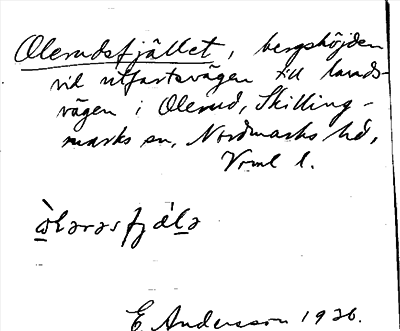 Olerudsfjället, bergshöjden
vid utfartsvägen till lands-
vägen i Olerud, Skilling-
marks sn, Nordmarks hd,
Vrml l.
E Andersson 1926.